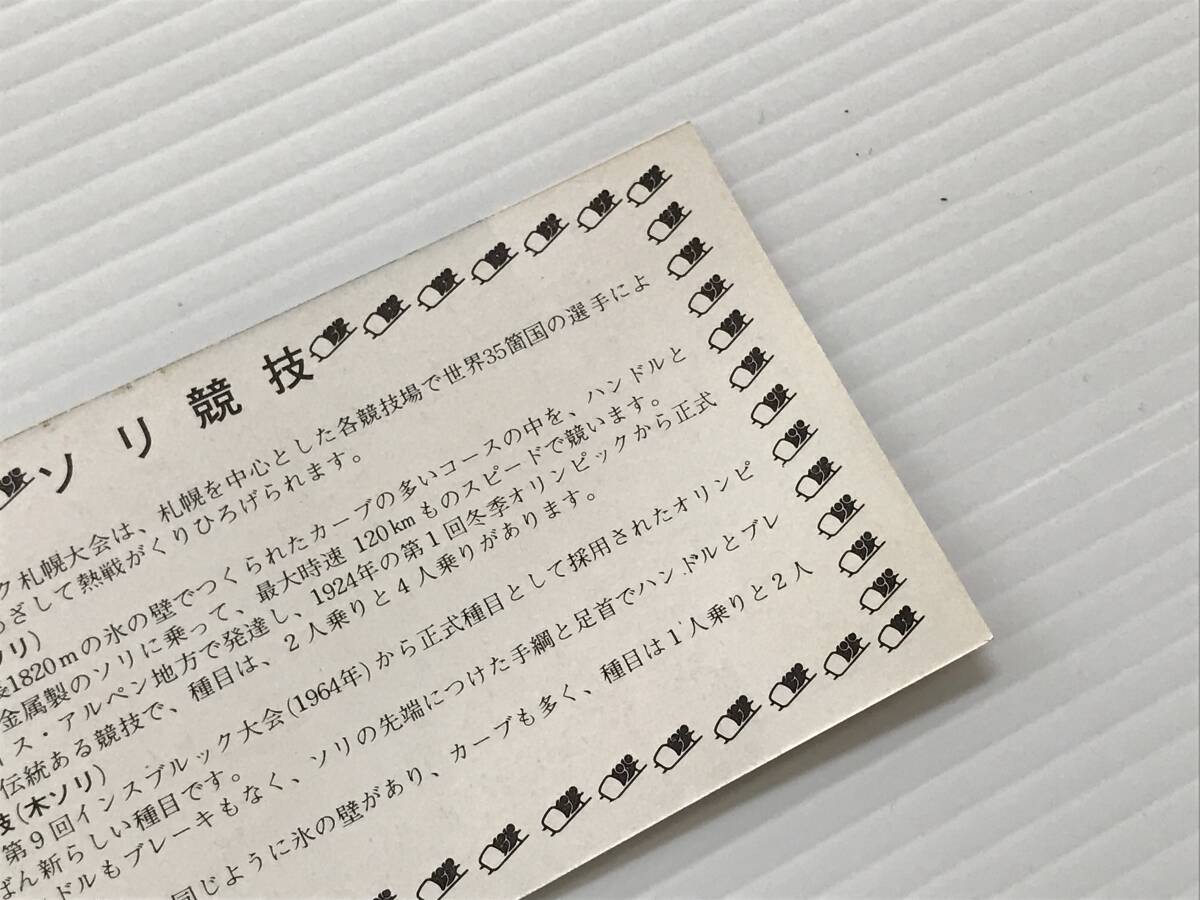 ソリ競技
ク札幌大会は、札幌を中心とした各競技場で世界35箇国の選手によ
ざして熱戦がくりひろげられます。
ソリ)
長1820mの氷の壁でつくられたカーブの多いコースの中を、ハンドルと
金属製のソリに乗って、最大時速 120kmものスピードで競います。
ス・アルペン地方で発達し、1924年の第1回冬季オリンピックから正式
伝統ある競技で、種目は、2人乗りと4人乗りがあります。
技(木ソリ)
第9回インスブルック大会(1964年)から正式種目として採用されたオリンピ
ばん新らしい種目です。
ドルもブレーキもなく、ソリの先端につけた手綱と足首でハンドルとブレ
同じように氷の壁があり、カーブも多く、種目は1人乗りと2人